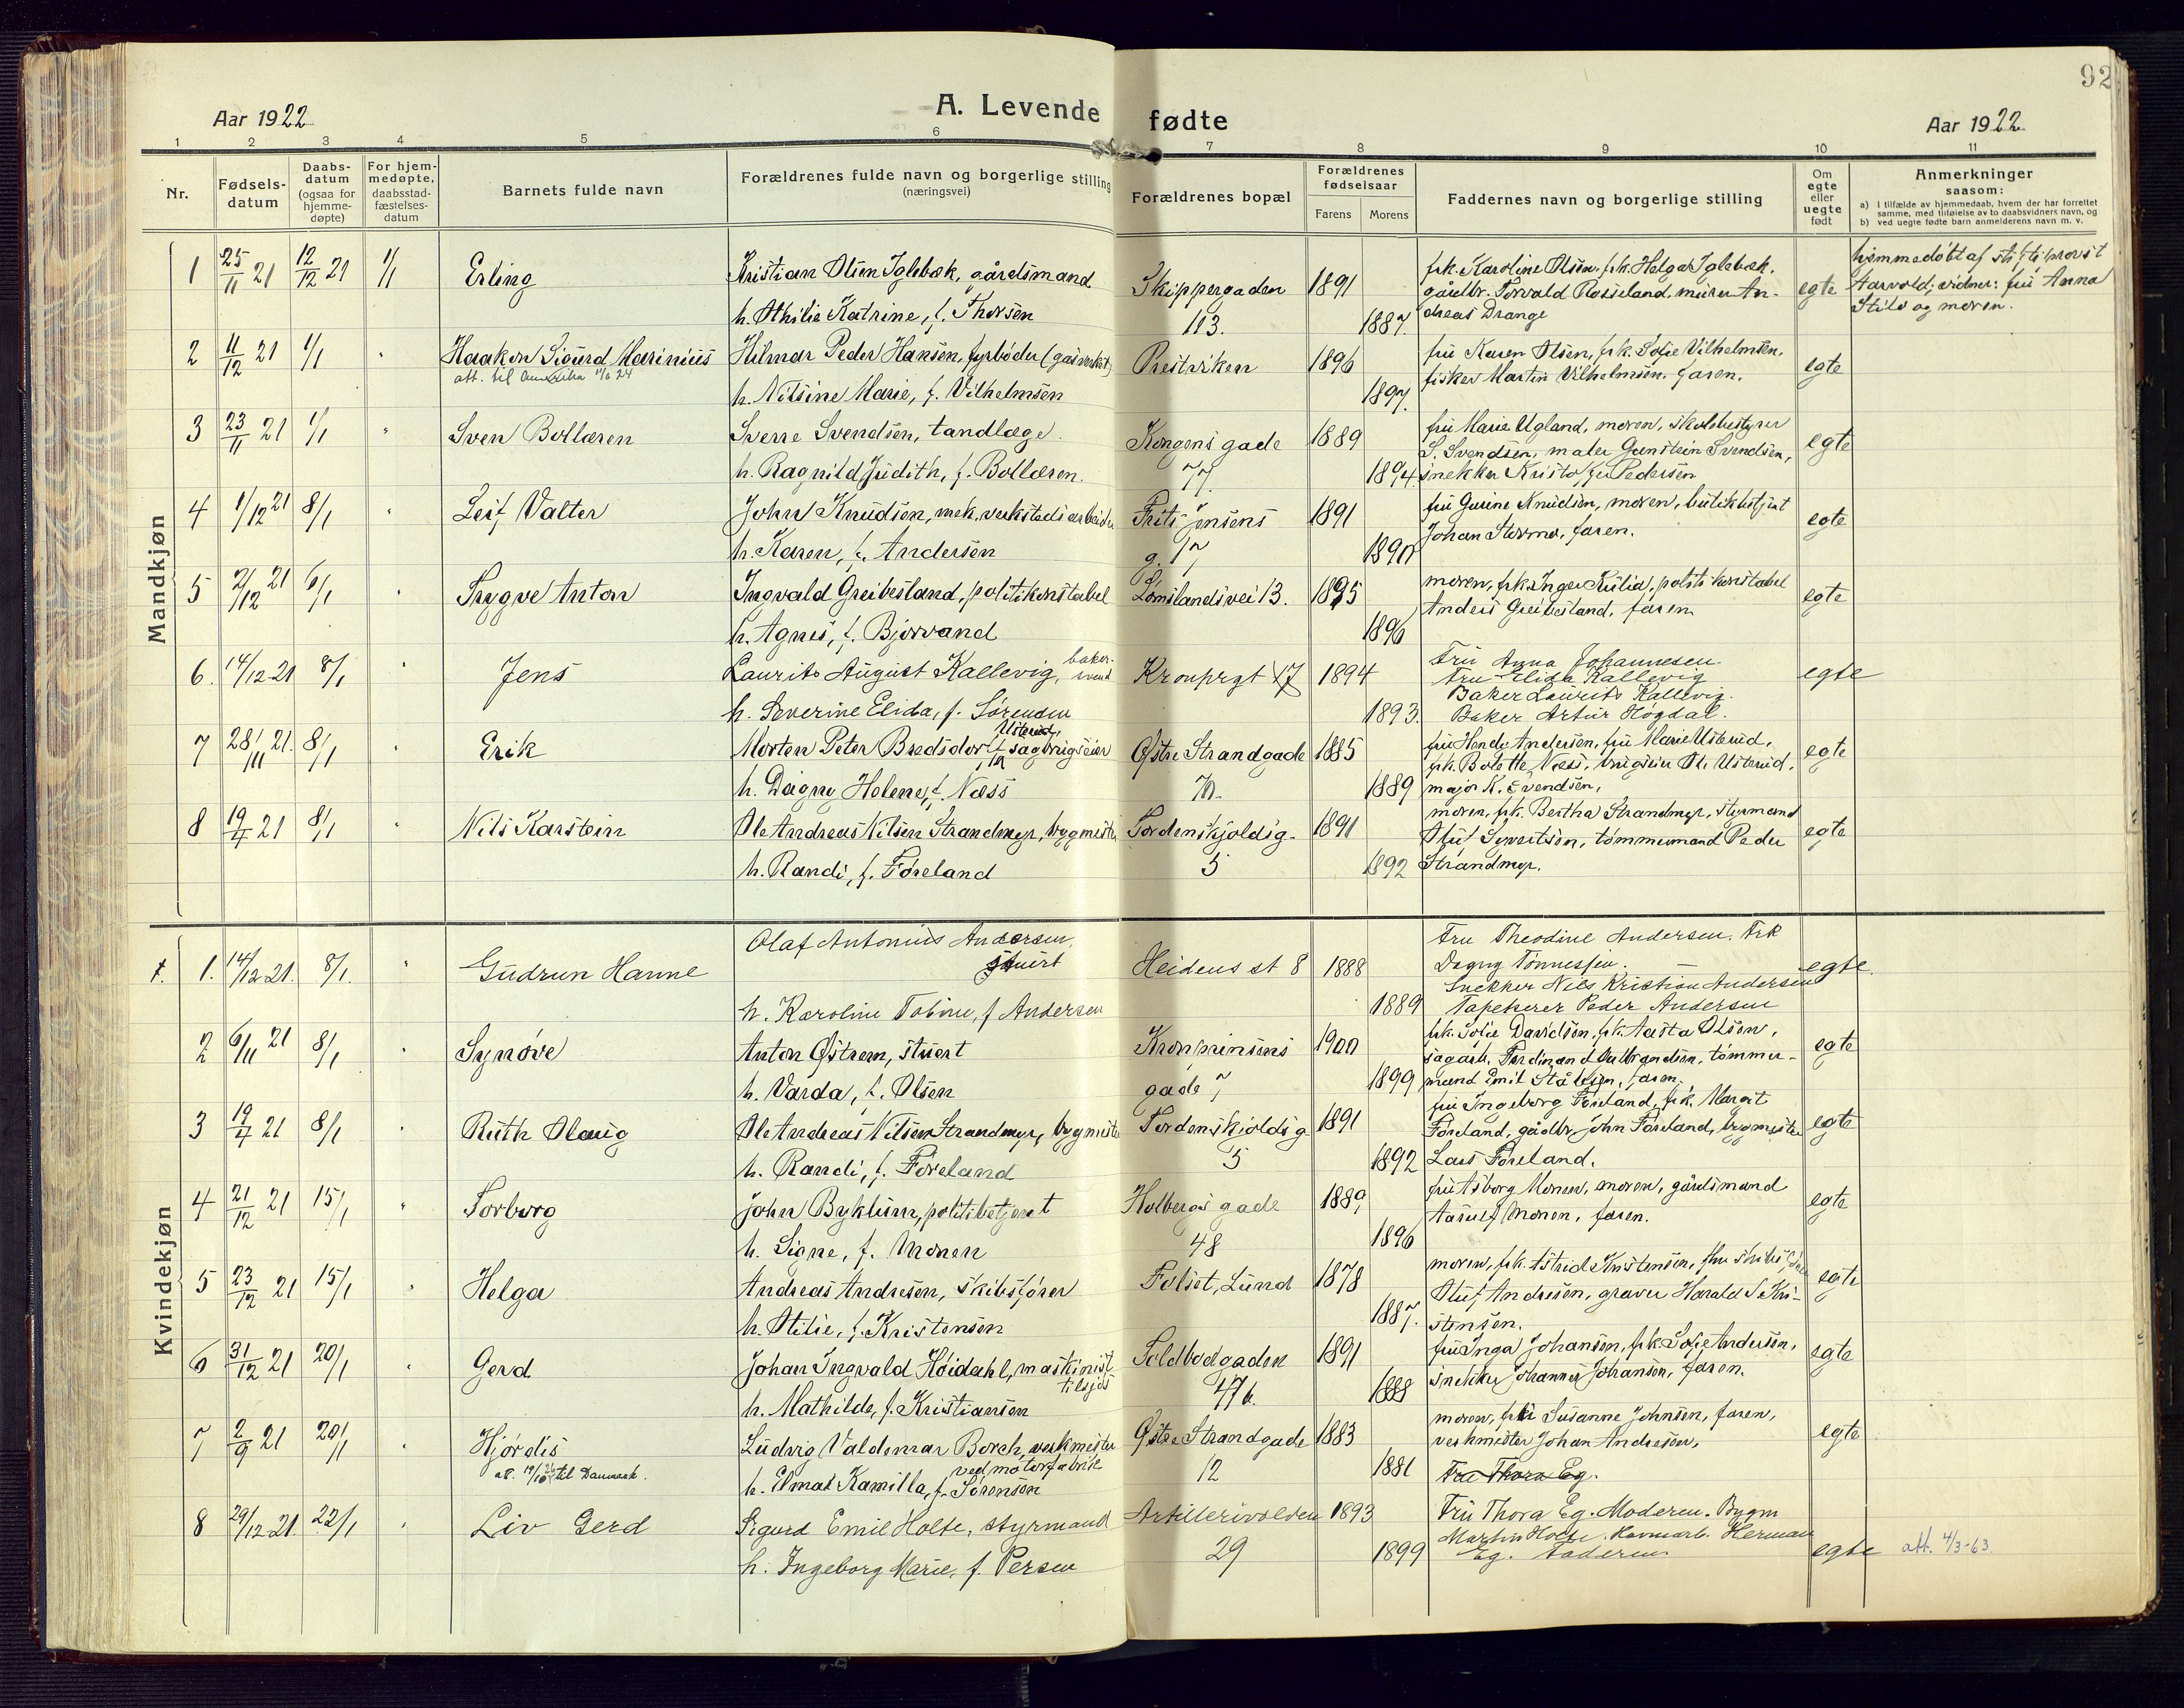 92
Aar 1922
A. Levende fødte
Aar 1922.
1 2 3 4 5 6 7 8 9 10 11
Nr.
Fødsels-
datum
Daabs-
datum
(ogsaa for
hjemme-
døpte)
For hjem-
medøpte,
daabsstad-
fæstelses-
datum
Barnets fulde navn
Forældrenes fulde navn og borgerlige stilling
(næringsvei)
Forældrenes bopæl
Forældrenes
fødselsaar
Farens
Morens
Faddernes navn og borgerlige stilling
Om
egte
eller
uegte
født
Anmerkninger
saasom:
a) i tilfælde av hjemmedaab, hvem der har forrettet
samme, med tilføielse av to daabsvidners navn, og
b) ved uegte fødte barn anmelderens navn m. v.
Mandkjøn
1 25/11 21 12/12 21 1/1 Erling
Kristian Olsen Iglebæk, gårdsmand
h. Othilie Katrine, f. Thorsen
Skippergaden
113.
1891
1887.
frk. Karoline Olsen, frk. Helga Iglebæk,
gårdbr. Torvald Rosseland, murer An-
dreas Drange
egte
hjemmedøbt af stiftsprovst
Aarvold; vidner: fru Anna
og moren.
2 11/12 21 1/1 Haakon Sigurd Marinius
att. til Amerika 11/6 24
Hilmar Peder Hansen, fyrbøder (gasverket)
h. Nilsine Marie, f. Vilhelmsen
Prestviken
1896
1897.
fru Karen Olsen, frk. Sofie Vilhelmsen,
fisker Martin Vilhelmsen, faren.
egte
3 23/11 21 1/1 " Sven Bollæren
Sverre Svendsen, tandlæge.
h. Ragnild Judith, f. Bollæren.
Kongens gade
77.
1889
1894.
fru Marie Ugland, moren, skolebestyrer
S. Svendsen, maler Gunstein Svendsen,
snekker Kristoffer Pedersen
egte
4 1/12 21 8/1 " Leif Valter
John Knudsen, mek. verkstedsarbeider
h. Karen, f. Andersen
Frits Jensens
g. 17
1891
1890
fru Gurine Knudsen, moren, butikbetjent
Johan Stormo, faren.
egte
5 2/12 21 6/1 " Trygve Anton
Ingvald Greibesland, politikonstabel
h. Agnes, f. Bjorvand
Lømslandsvei 13.
1895
1896
moren, frk. Inger Kulia, politikonstabel
Anders Greibesland, faren
egte
6. 14/12-21 8/1 " Jens
Laurits August Kallevig, baker-
svend
h. Severine Elida, f. Sørensen
Kronprgt 17
1894
1893.
Fru Anna Johannesen
Fru Elida Kallevig
Baker Laurits Kallevig.
Baker Artur Høgdal.
egte
7 28/11 21. 8/1 " Erik
Morten Peter Bredsdorff Usterud, sagbrugseier
h. Dagny Helene, f. Næss
Østre Strandgade
70.
1885
1889
fru Andersen, fru Marie Usterud,
frk. Bolette Næss, brugseier Ole Usterud,
major K. Svendsen,
egte
8 19/7 21 8/1 " Nils Karstein
Ole Andreas Nilsen Strandmyr, bygmester
h. Randi, f. Føreland
Tordenskjoldsg.
5
1891
1892
moren, frk. Bertha Strandmyr, styrmand
Oluf Syvertsen, tømmermand Peder
Strandmyr.
egte
Kvindekjøn
†. 1. 14/12-21. 8/1. " Gudrun Hanne
Olaf Antonius Andersen,
stuert
h. Karoline Tobine, f Andersen
Heidens st 8
1888
1889
Fru Theodine Andersen. Frk
Dagny Tønnessen.
Snekker Nils Kristian Andersen
Tapetserer Peder Andersen
egte.
2 6/11 21 8/1 " Synøve
Anton Østrem, stuert
h. Varda, f. Olsen
Kronprinsens
gade 7
1900
1899
frk. Sofie Davidsen, frk. Aasta Olsen,
sagarb. Ferdinand Gulbrandsen, tømmer-
mand Emil Stålesen, faren.
egte
3 19/7 21 8/1 " Ruth Olaug
Ole Andreas Nilsen Strandmyr, bygmester
h. Randi, f. Føreland
Tordenskjoldsg
5
1891
1892
fru Ingeborg Føreland, frk. Margit
Føreland, gådbr. John Føreland, bygmester
Lars Føreland.
egte
4 21/12 21 15/1 " Torborg
John Byklum, politibetjent
h. Signe, f. Monen
Holbergs gade
48
1889
1896
fru Asborg Monen, moren, gårdsmand
Aanulf Monen, faren.
egte
5 23/12 21 15/1 " Helga
Andreas Andresen, skibsfører
h. Otilie, f. Kristensen
Følset, Lund
1878
1887.
moren, frk. Astrid Kristensen, fhv skibsfører
Oluf Andresen, graver Harald S. Kri-
stensen.
egte
6 31/12 21 20/1 " Gerd
Johan Ingvald Høidahl, maskinist
tilsjøs
h. Mathilde, f. Kristiansen
Toldbodgaden
47b.
1891
1888
fru Inga Johansen, frk. Sofie Andersen,
snekker Johannes Johansen, faren.
egte
7 2/9 21 20/1 " Hjørdis
att. 19/10 26 til Danmark.
Ludvig Valdemar Borch, verkmester
ved motorfabrik
h. Elmat Kamilla, f. Sørensen
Østre Strandgade
12
1883
1881
moren, frk. Susanne Johnsen, faren,
verkmester Johan Andresen,
Fru Thora Eg.
egte
8 29/12 21. 22/1 " Liv Gerd
Sigurd Emil Holte, styrmand
h. Ingeborg Marie, f. Persen
Artillerivolden
29
1893
1899
Fru Thora Eg. Moderen. Bygm
Martin Holte. Havnearb. Herman
Eg. Faderen
egte
att. 4/3-63